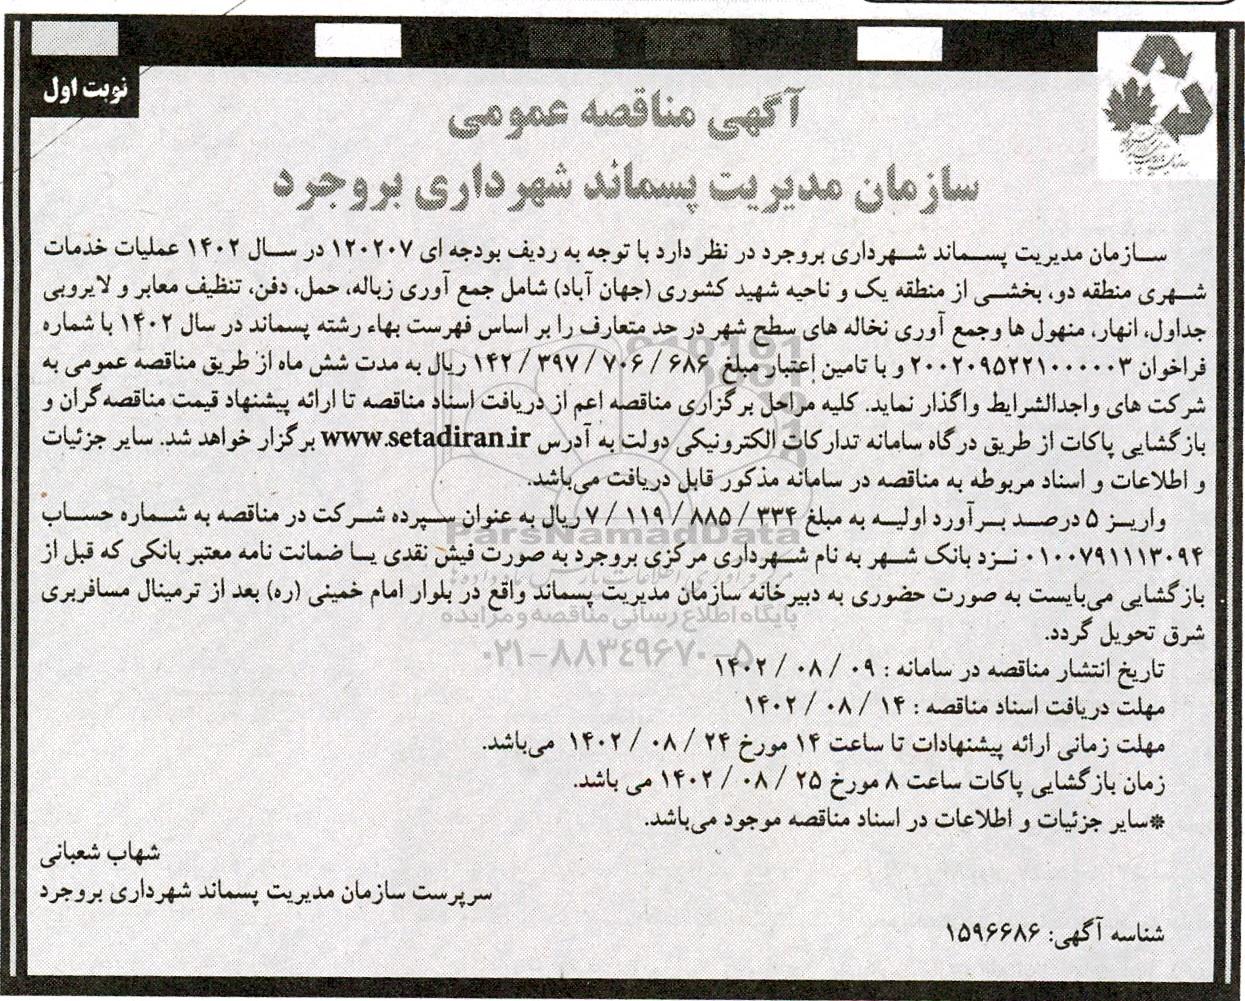 نوبت اول
آگهی مناقصه عمومی
سازمان مدیریت پسماند شهرداری بروجرد
سازمان مدیریت پسماند شهرداری بروجرد در نظر دارد با توجه به ردیف بودجه ای ۱۲۰۲۰۷ در سال ۱۴۰۲ عملیات خدمات
شهری منطقه دو، بخشی از منطقه یک و ناحیه شهید کشوری (جهان آباد) شامل جمع آوری زباله، حمل، دفن، تنظیف معابر و لایروبی
جداول، انهار، منهول ها وجمع آوری نخاله های سطح شهر در حد متعارف را بر اساس فهرست بهاء رشته پسماند در سال ۱۴۰۲ با شماره
فراخوان ۲۰۰۲۰۹۵۲۲۱۰۰۰۰۰۳ و با تامین اعتبار مبلغ ۶۸۶ / ۷۰۶ / ۳۹۷ / ۱۴۲ ریال به مدت شش ماه از طریق مناقصه عمومی به
شرکت های واجدالشرایط واگذار نماید. کلیه مراحل برگزاری مناقصه اعم از دریافت اسناد مناقصه تا ارائه پیشنهاد قیمت مناقصه‌گران و
بازگشایی پاکات از طریق درگاه سامانه تدارکات الکترونیکی دولت به آدرس www.setadiran.ir برگزار خواهد شد. سایر جزئیات
و اطلاعات و اسناد مربوطه به مناقصه در سامانه مذکور قابل دریافت می‌باشد.
واریز ۵ درصد برآورد اولیه به مبلغ ۳۳۴ / ۸۸۵ / ۱۱۹ / ۷ ریال به عنوان سپرده شرکت در مناقصه به شماره حساب
۰۱۰۰۷۹۱۱۱۳۰۹۴ نزد بانک شهر به نام شهرداری مرکزی بروجرد به صورت فیش نقدی یا ضمانت نامه معتبر بانکی که قبل از
بازگشایی می‌بایست به صورت حضوری به دبیرخانه سازمان مدیریت پسماند واقع در بلوار امام خمینی (ره) بعد از ترمینال مسافربری
شرق تحویل گردد.
تاریخ انتشار مناقصه در سامانه : ۰۹ / ۰۸ / ۱۴۰۲
مهلت دریافت اسناد مناقصه : ۱۴ / ۰۸ / ۱۴۰۲
مهلت زمانی ارائه پیشنهادات تا ساعت ۱۴ مورخ ۲۴ / ۰۸ / ۱۴۰۲ می‌باشد.
زمان بازگشایی پاکات ساعت ۸ مورخ ۲۵ / ۰۸ / ۱۴۰۲ می باشد.
*سایر جزئیات و اطلاعات در اسناد مناقصه موجود می‌باشد.
شهاب شعبانی
سرپرست سازمان مدیریت پسماند شهرداری بروجرد
شناسه آگهی: ۱۵۹۶۶۸۶
ParsNamadData
پایگاه اطلاع رسانی مناقصه و مزایده
۰۲۱-۸۸۳۴۹۶۷۰-۵